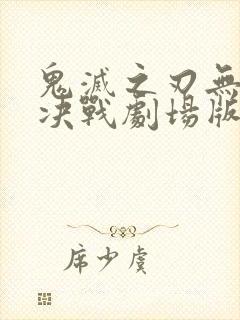 鬼滅之刃無
決戰劇場版
席少虞